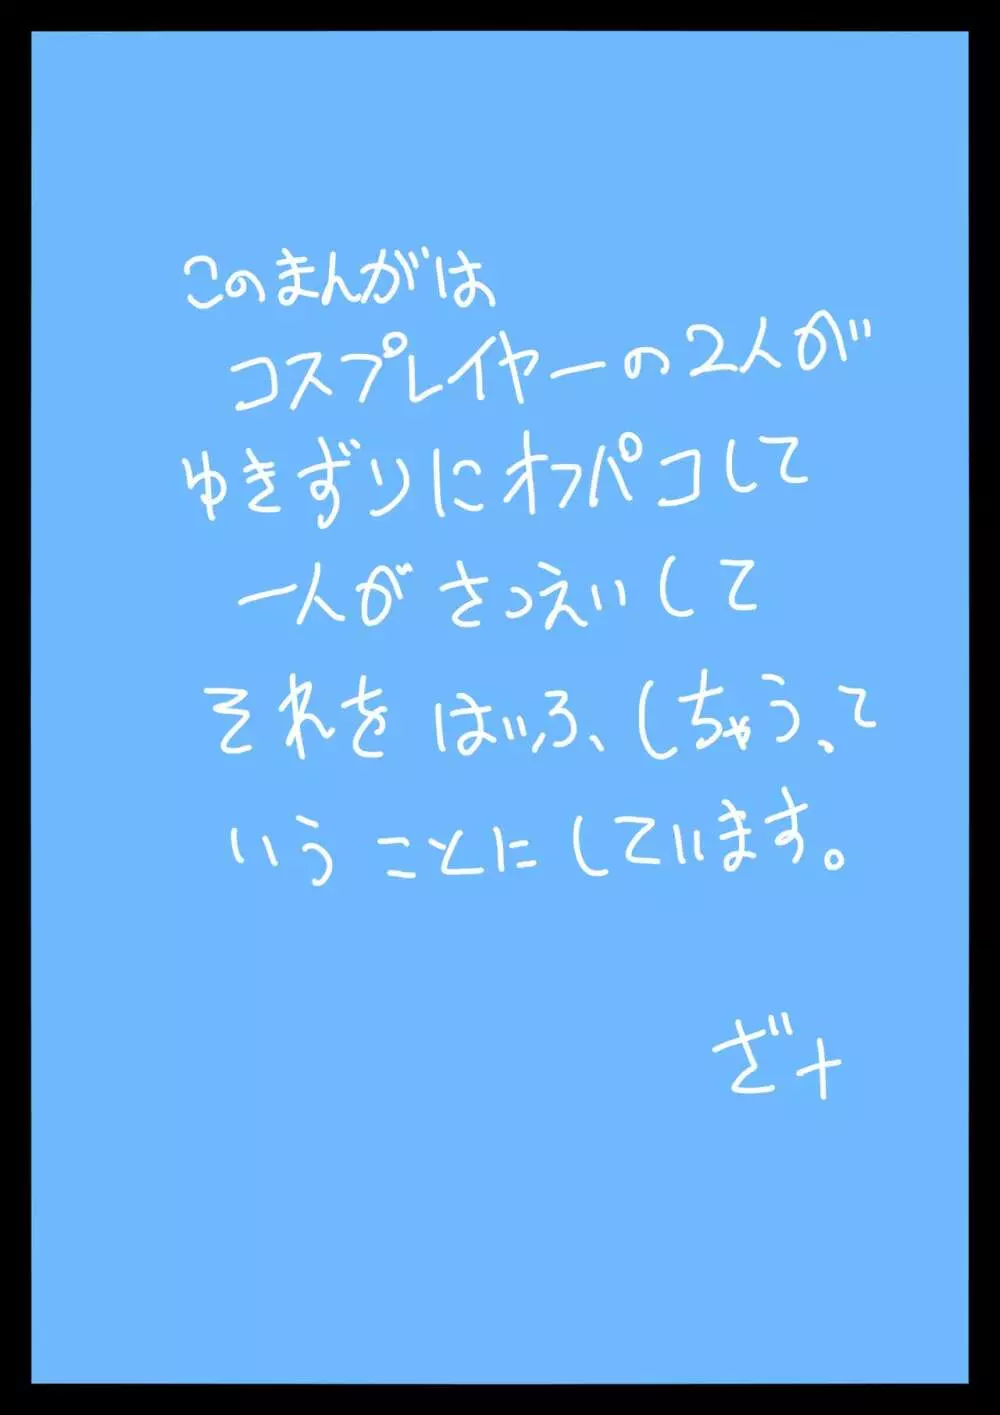 このまんがは
コスプレイヤーの2人が
ゆきずりにオフパコして
一人がさつえいして
それをはいふ、しちゃう、て
いうことにしています。
ざ+